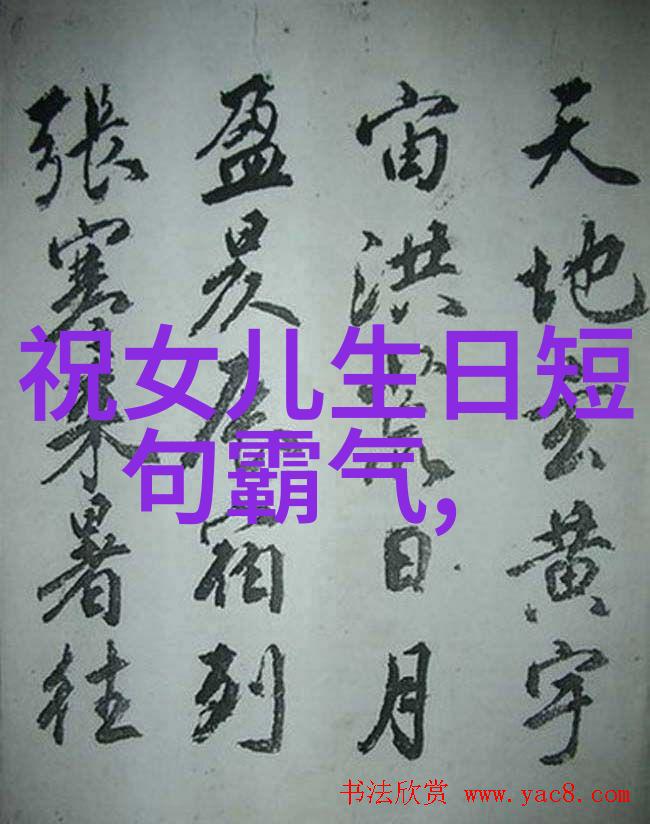 天地玄黄宇
宙洪荒日月
盈昃辰宿列
張寒来暑往
祝女儿生日短
句霸气,
书法欣赏 www.yac8.com